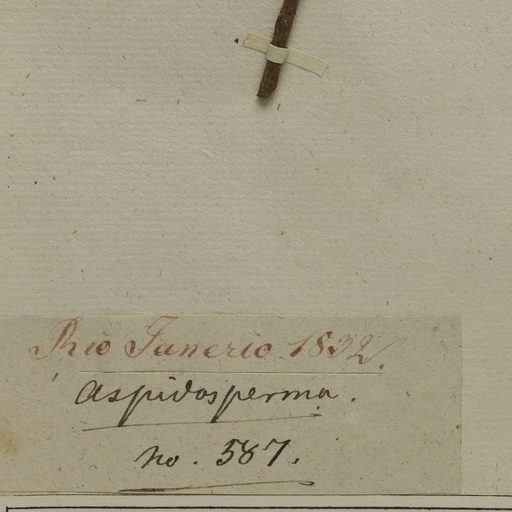 Rio Janerio 1832.
Aspidosperma.
No. 587.